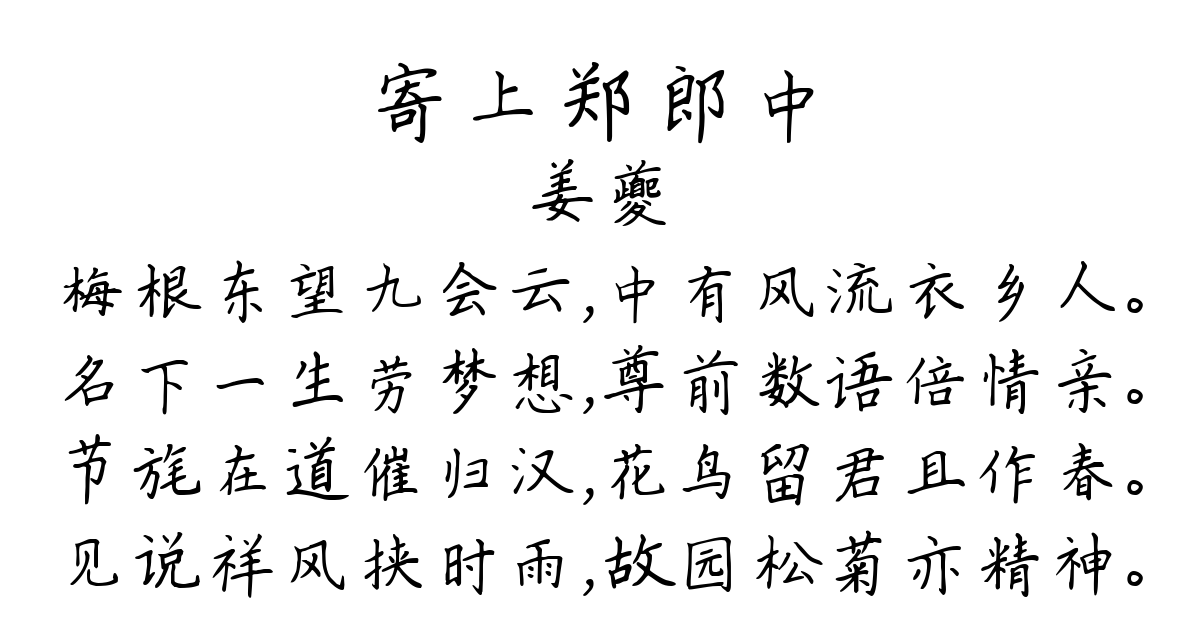 寄上郑郎中
姜夔
梅根东望九会云,中有风流衣乡人。
名下一生劳梦想,尊前数语倍情亲。
节旄在道催归汉,花鸟留君且作春。
见说祥风挟时雨,故园松菊亦精神。